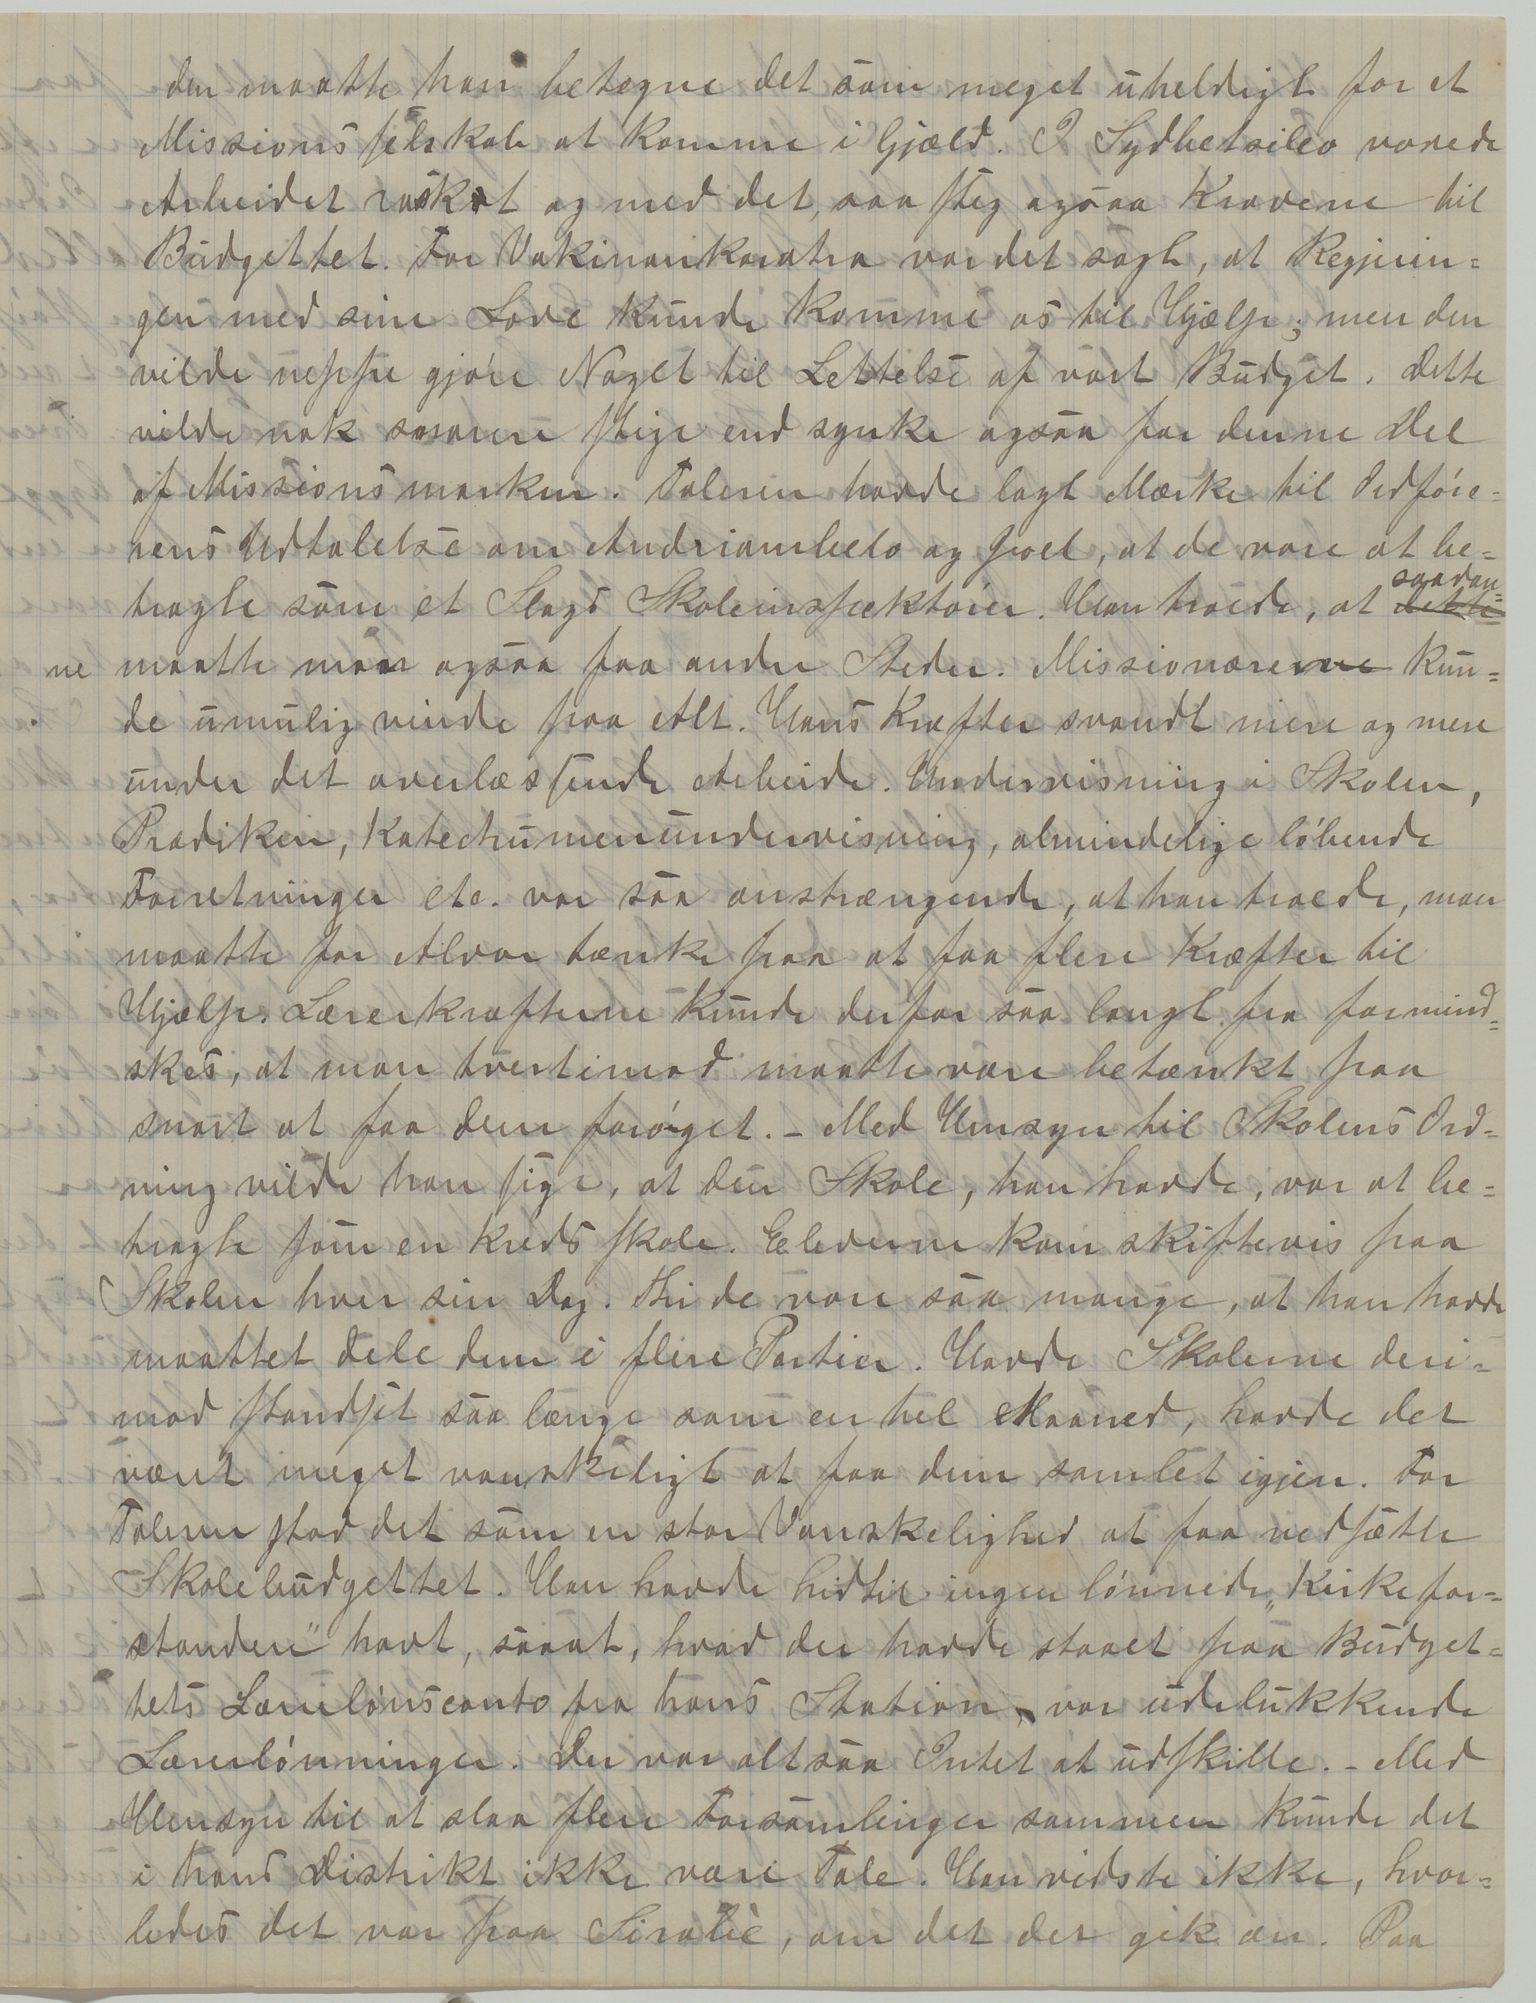 den maatte han betegne det som meget uheldigt for et
Missionsselskab at komme i Gjæld. I Sydbetsileo voxede
Arbeidet raskt og med det, saa steg ogsaa Kravene til
Budgettet. For Vakinankaratra var det sagt, at Regjerin=
gen med sine Love kunde komme os til Hjælp; men den
vilde neppe gjøre Noget til Lettelse af vort Budget. Dette
vilde nok snarere stige end synke ogsaa for denne Del
af Missionsmarken. Taleren havde lagt Mærke til Ordføre=
rens Udtalelse om Andriambelo og Joel, at de vare at be=
tragte som et Slags Skoleinspektører. Han troede, at dette saadan=
ne maatte man ogsaa faa andre Steder. Missionærerne kun=
de umulig vinde paa Alt. Hans Kræfter svandt mere og mere
under det overlæssende Arbeide. Undervisning i Skolen,
Prædiken, Katechumenundervisning, almindelige løbende
Forretninger etc. var saa anstrængende, at han troede, man
maatte for Alvor tænke paa at faa flere Kræfter til
Hjælp. Lærerkræfterne kunde derfor saa langt fra formind=
skes, at man tvertimod maatte være betænkt paa
snart at faa dem forøget. – Med Hensyn til Skolens Ord=
ning vilde han sige, at den Skole, han havde, var at be=
tragte som en Kredsskole. Eleverne kom skiftevis paa
Skolen hver sin Dag. Thi de vare saa mange, at han havde
maattet dele dem i flere Partier. Havde Skolerne deri=
mod standset saa længe som en hel Maaned, havde det
været meget vanskeligt at faa dem samlet igjen. For
Taleren stod det som en stor Vanskelighed at faa nedsætte
Skolebudgettet. Han havde hidtil ingen lønnede „Kirkefor=
standere" havt, saaat, hvad der havde staaet paa Budget=
tets Lærerlønsconto fra hans Station, var udelukkende
Lærerlønninger. Der var altsaa Intet at udskille. – Med
Hensyn til at slaa flere Forsamlinger sammen kunde det
i hans Distrikt ikke være Tale. Han vidste ikke, hvor=
ledes det var paa Sirabè, om det der gik an. Paa